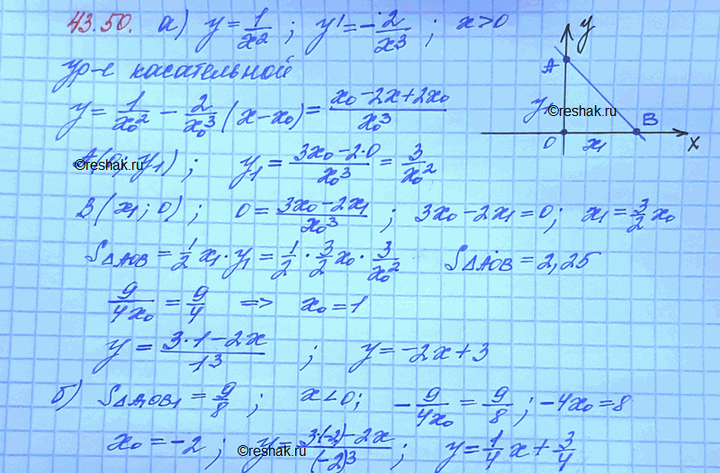 43.50. а) y = 1/x² ; y' = -2/x³ ; x>0
ур-е касательной
y = 1/x₀² - 2/x₀³ (x-x₀) = (x₀-2x+2x₀)/x₀³
A(0; y₁) ; y₁ = (3x₀-2·0)/x₀³ = 3/x₀²
B(x₁; 0) ; 0 = (3x₀-2x₁)/x₀³ ; 3x₀-2x₁=0; x₁ = 3/2 x₀
S△AOB = 1/2 x₁·y₁ = 1/2 · 3/2 x₀ · 3/x₀² S△AOB = 2,25
9/4x₀ = 9/4 => x₀=1
y = (3·1-2x)/1³ ; y = -2x+3
б) S△A₁OB₁ = 9/8 ; x<0; -9/4x₀ = 9/8 ; -4x₀=8
x₀=-2 ; y = (3(-2)-2x)/(-2)³ ; y = 1/4 x + 3/4
y
A
y
©reshak.ru
B
O
x₁
x
©reshak.ru
©reshak.ru